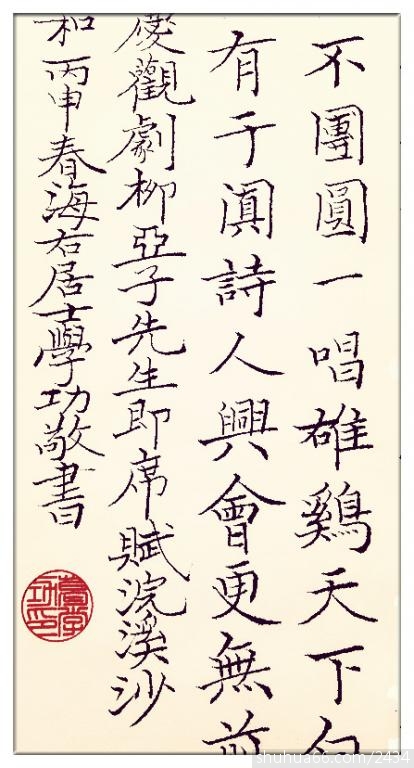 不團圓一唱雄鷄天下白
有于闐詩人興會更無前
慶觀劇柳亞子先生即席賦浣溪沙
和丙申春海右居士學功敬書
shuhua66.com/2434